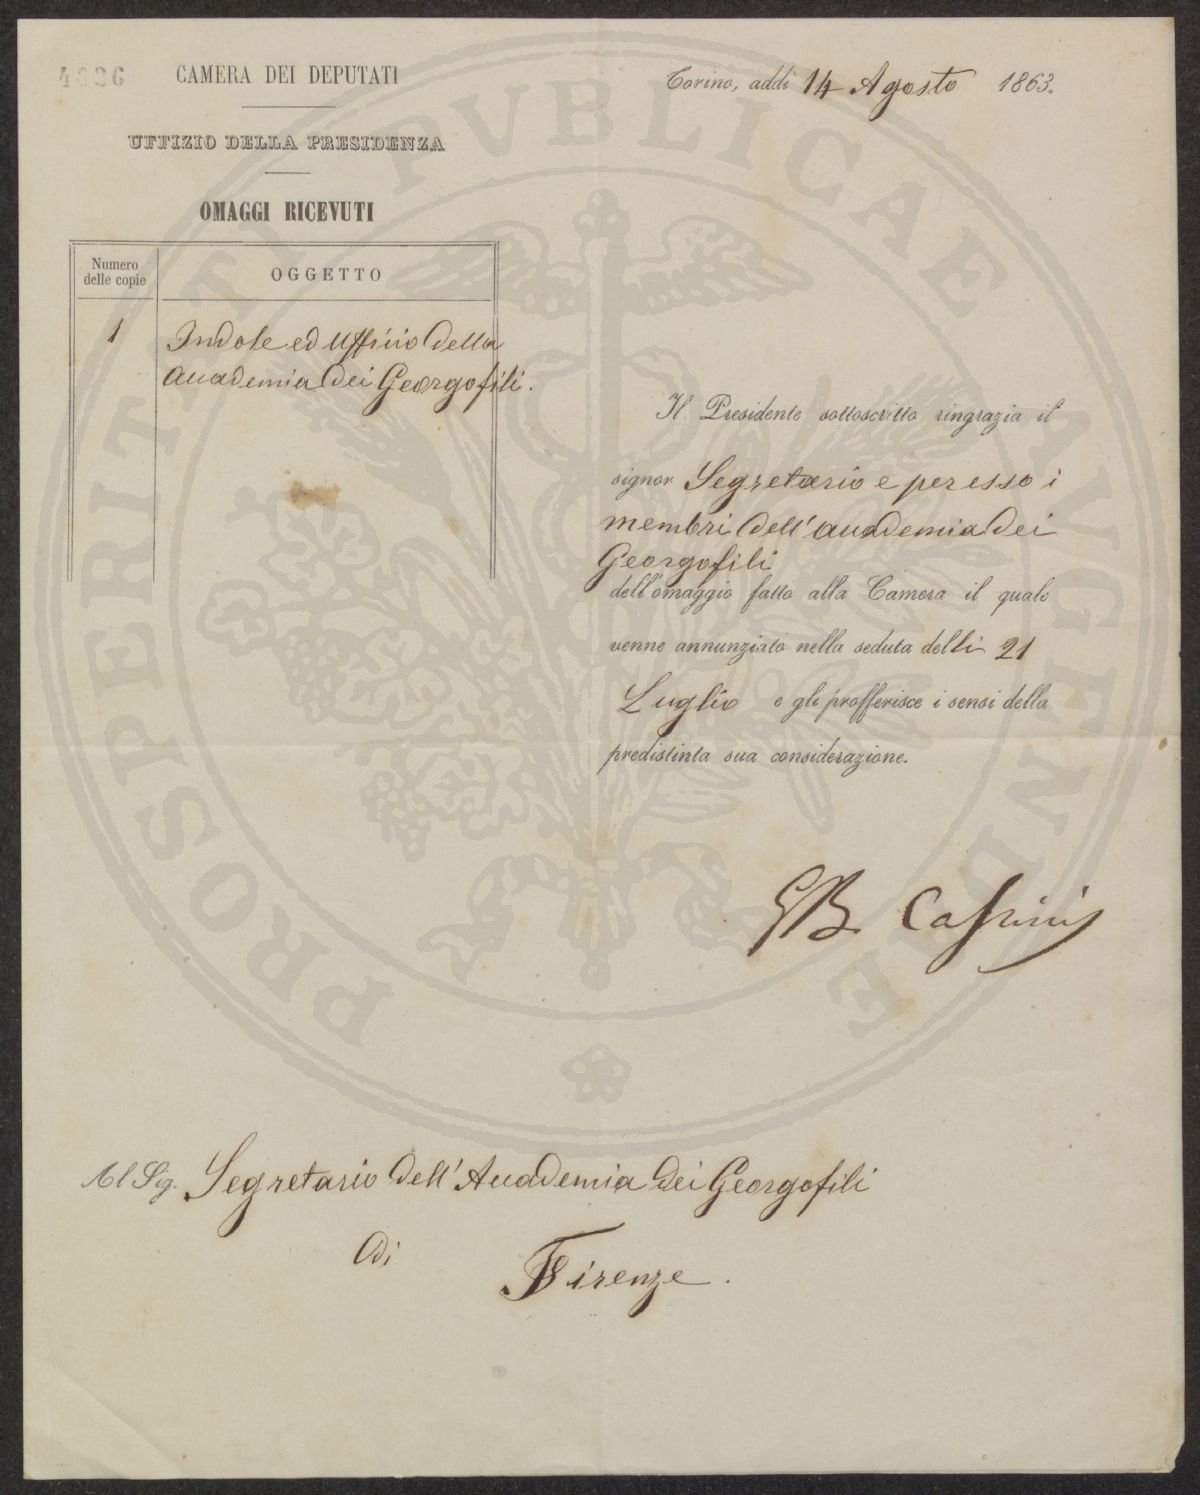 4026
CAMERA DEI DEPUTATI
UFFIZIO DELLA PRESIDENZA
OMAGGI RICEVUTI
Numero delle copie
OGGETTO
1
Indole ed Uffizio della
Accademia dei Georgofili.
Torino, addì 14 Agosto 1863.
Il Presidente sottoscritto ringrazia il
signor Segretario e per esso i
membri dell'accademia dei
Georgofili
dell'omaggio fatto alla Camera il quale
venne annunziato nella seduta delli 21
Luglio e gli profferisce i sensi della
predistinta sua considerazione.
GB Cassinis
Al Sig. Segretario dell'Accademia dei Georgofili
di
Firenze.
PROSPERITATI PVBLICAE AVGENDAE